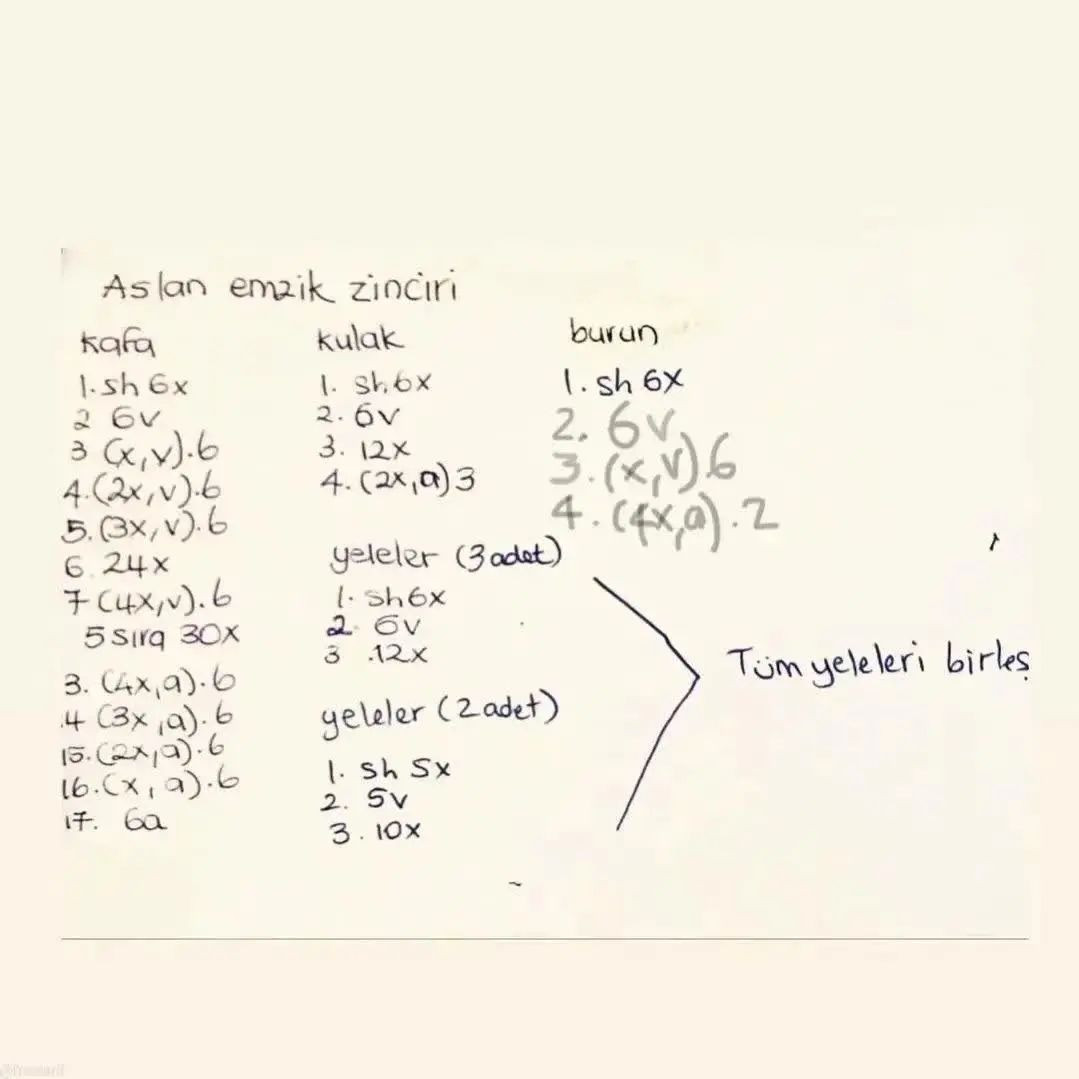 Aslan emzik zinciri
kafa
1. sh 6x
2 6v
3 (x,v).6
4.(2x,v).6
5.(3x,v).6
6. 24x
7 (4x,v).6
5 sıra 30x
3. (4x,a).6
.4 (3x,a).6
15.(2x,a).6
16.(x,a).6
17. 6a
kulak
1. sh.6x
2. 6v
3. 12x
4. (2x,a)3
yeleler (3 adet)
1. sh6x
2. 6v
3 .12x
yeleler (2 adet)
1. sh 5x
2. 5v
3. 10x
burun
1. sh 6x
2. 6v
3. (x,v).6
4. (4x,a).2
Tüm yeleleri birleş